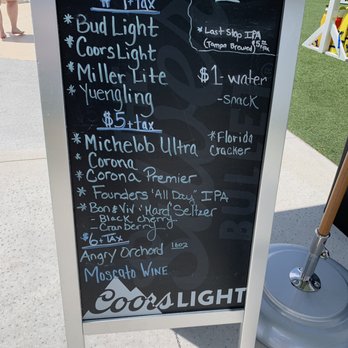 + Tax
* Bud Light
* Coors Light
* Miller Lite
* Yuengling
$5 + tax
* Michelob Ultra
* Corona
* Corona Premier
* Founders "All Day" IPA
* Bon & Viv "Hard" Seltzer
- Black Cherry
- Cranberry
$6 + Tax
Angry Orchard 16oz
Moscato Wine
* Last Stop IPA
(Tampa Brewed)
$1 - water
- snack
* Florida
Cracker
Coors LIGHT